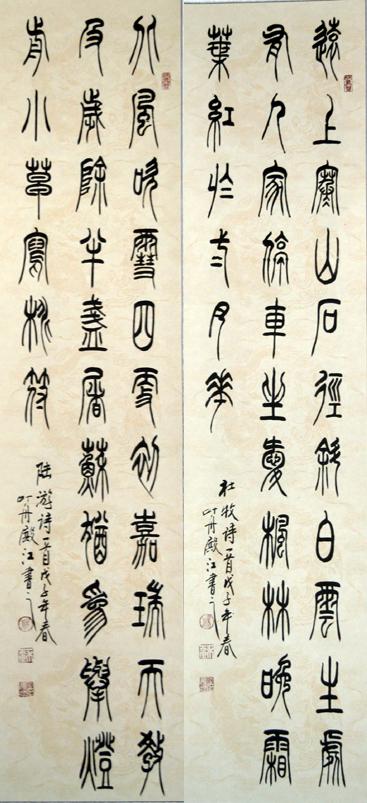 遠上寒山石徑斜白雲生處
有人家停車坐愛楓林晚霜
葉紅於二月花
杜牧诗一首戊子年春
殿江書
北風吹雪四更初嘉瑞天教
及歲除半盞屠蘇猶未舉燈
前小草寫桃符
陸游诗一首戊子年春
殿江書